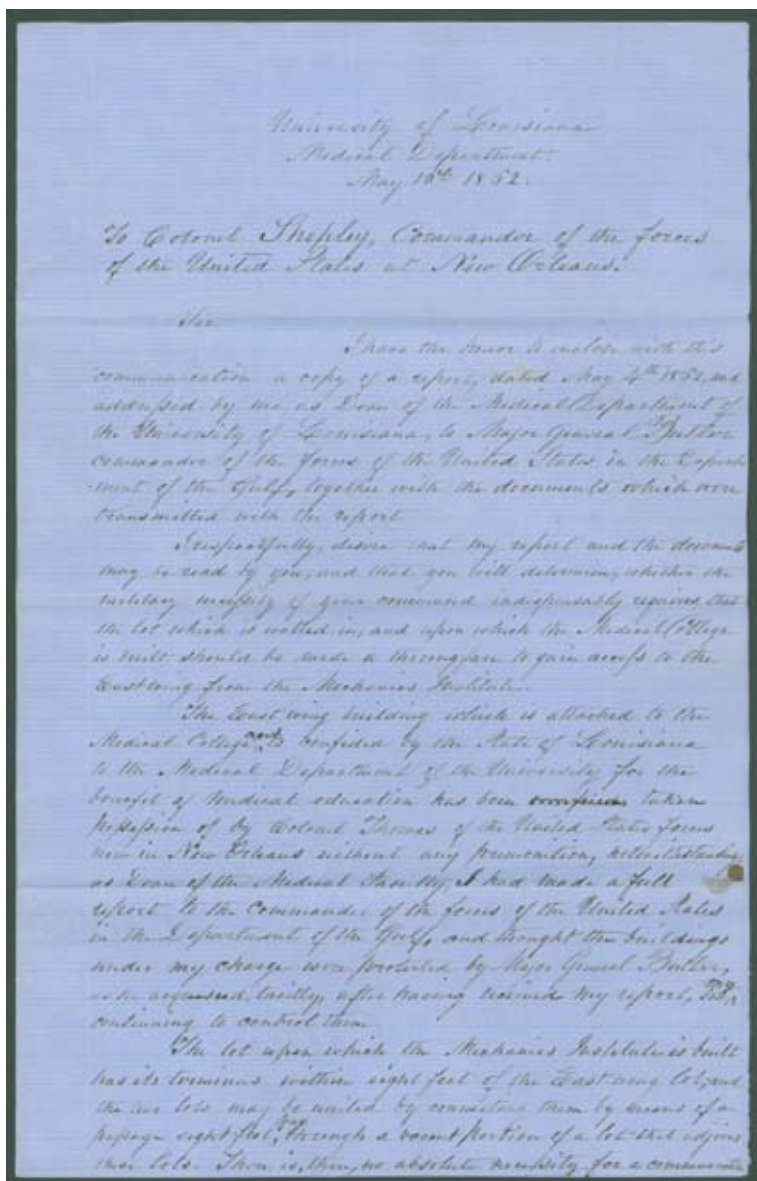 University of Louisiana
Medical Department
May 10th 1862.
To Colonel Shepley, Commander of the forces
of the United States at New Orleans.
Sir.
I have the honor to inclose with this
communication a copy of a report, dated May 4th 1862, and
addressed by me, as Dean of the Medical Department of
the University of Louisiana, to Major General Butler
commander of the forces of the United States in the Depart-
ment of the Gulf, together with the documents which were
transmitted with the report
I respectfully, desire that my report and the documents
may be read by you, and that you will determine, whether the
military necessity of your command indispensably requires that
the lot which is walled in, and upon which the Medical College
is built should be made a thoroughfare to gain access to the
East wing from the Mechanics Institute.
The East wing building which is attached to the
Medical College and is confided by the State of Louisiana
to the Medical Department of the University for the
benefit of medical education has been taken
possession of by Colonel Thomas of the United States forces
now in New Orleans without any premonition, notwithstanding,
as Dean of the Medical Faculty, I had made a full
report to the Commander of the forces of the United States
in the Department of the Gulf, and thought the buildings
under my charge were protected by Major General Butler,
as he acquiesced, tacitly, after having received my report,
continuing to control them.
The lot upon which the Mechanics Institute is built
has its terminus within eight feet of the East wing lot, and
the two lots may be united by connecting them by means of a
passage eight feet, through a vacant portion of a lot that adjoins
these lots. There is, then, no absolute necessity for a